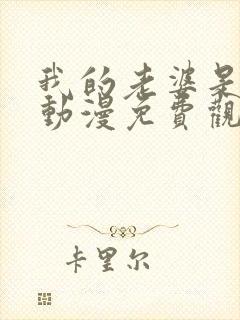 我的老婆呆
動漫免費觀
卡里尔